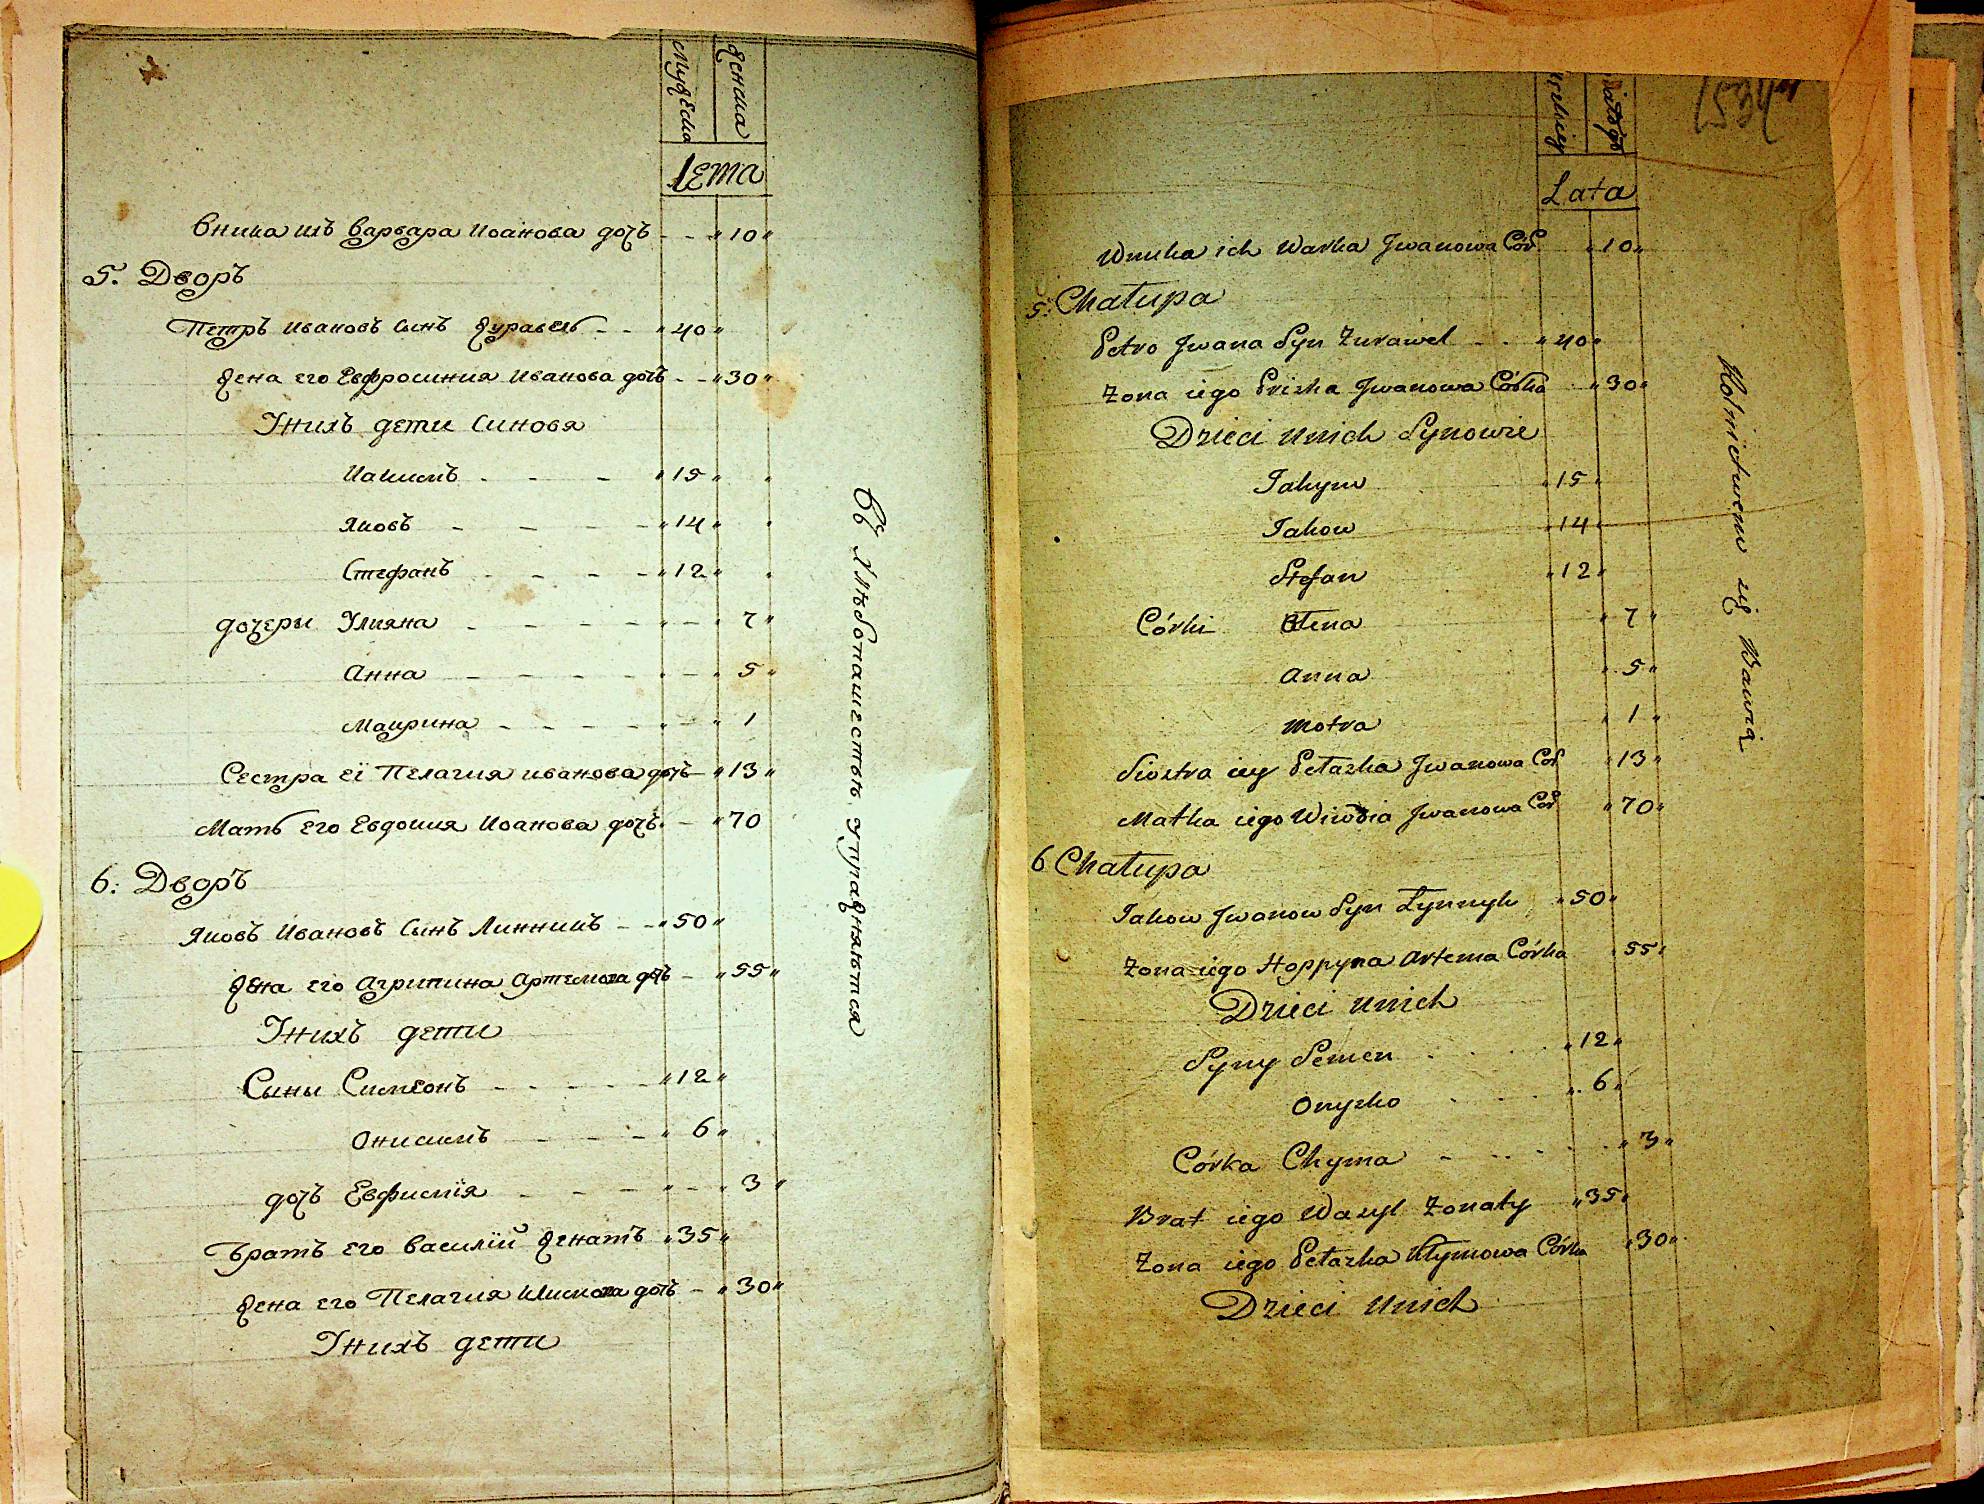 Мужеска
Женска
Лета
Внука ихъ Варвара Иоанова дочь - - „ 10 „
5. Дворъ
Петръ Ивановъ Сынъ Журавель - - „ 40 „
Жена его Евфросиния Иванова дочь - - „ 30 „
Унихъ дети Синовя
Иакимъ - - - „ 15 „
Яковъ - - - - „ 14 „
Стефанъ - - - - „ 12 „
дочери Улияна - - - - „ - „ 7 „
Анна - - - - „ - „ 5 „
Маирина - - - - „ - „ 1
Сестра еї Пелагия Иванова дочь - „ 13 „
Мать его Евдокия Иоанова дочь - „ 70
6: Дворъ
Яковъ Ивановъ Сынъ Линникъ - - „ 50 „
Жена его Агрипина Артемова дочь - „ 55 „
Унихъ дети
Сыны Симеонъ - - - - „ 12 „
Онисимъ - - - „ 6 „
дочь Евфимїя - - - „ - „ 3 „
Братъ его Василїй Женатъ „ 35 „
Жена его Пелагия Климова дочь - „ 30 „
Унихъ дети
Въ Хлѣбопашестьѣ упражняются
Lata
Wnuka ich Warka Jwanowa Cór „ 10 „
5: Chałupa
Petro Jwana Syn Żurawel - - „ 40 „
Żona iego Prizka Jwanowa Córka „ 30 „
Dzieci unich Synowie
Jakym „ 15 „
Jakow „ 14 „
Stefan „ 12 „
Córki Olena „ 7 „
Anna „ 5 „
Motra „ 1 „
Siostra iey Pełazka Jwanowa Cór „ 13 „
Matka iego Wiwdia Jwanowa Cór „ 70 „
6 Chałupa
Jakow Jwanow Syn Łynnyk „ 50 „
Żona iego Hoppyna Artema Córka „ 55 „
Dzieci unich
Syny Semen . . . . „ 12 „
Onyzko . . . . „ 6 „
Córka Chyma - . . . „ 3 „
Brat iego Wasyl Żonaty „ 35 „
Żona iego Pełazka Kłymowa Córka „ 30 „
Dzieci unich
Rolnictwem się Bawią